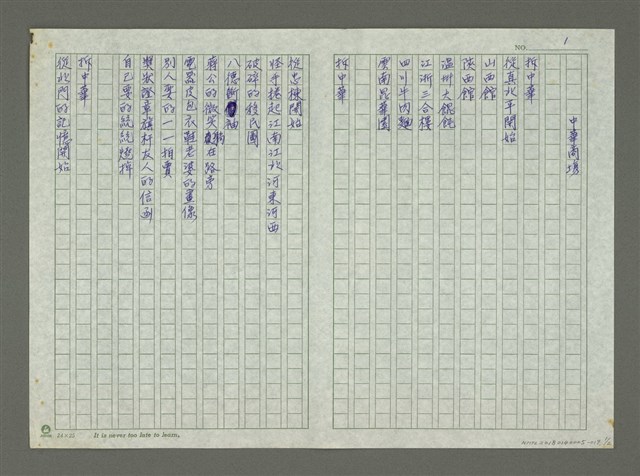 NO. 1
中華商場
拆中華
從真北平開始
山西館
陝西館
溫州大餛飩
江浙三合樓
四川牛肉麵
雲南昆華園
拆中華
從忠棟開始
怪手捲起江南江北河東河西
破碎的移民圖
八德
蔣公的微笑在路旁
電器皮包衣鞋老婆的畫像
別人要的一一拍賣
獎狀證章旗杆友人的信函
自己要的統統燒掉
拆中華
從北門的記憶開始
24×25 It is never too late to learn.